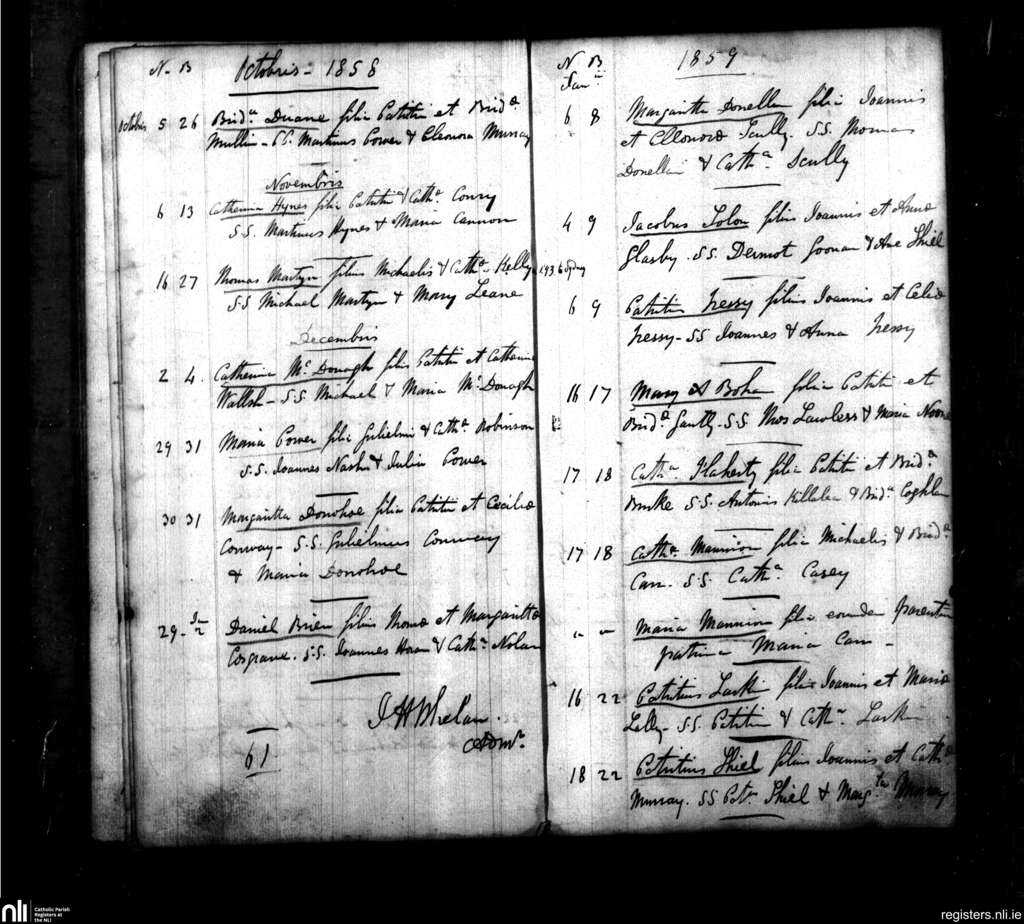 N. B
Octobris - 1858
Octobris 5 26 Brid.a Duane filia Patritii et Brid.æ
Mullin - SS. Martinus Power & Eleonora Murray
Novembris
6 13 Catherina Hynes filia Patritii & Cath.æ Conry
S.S. Martinus Hynes & Maria Cannon
16 27 Thomas Martyn filius Michaelis & Cath.æ Kelly
S.S Michael Martyn & Mary Leane
Decembris
2 4. Catherina Mc Donagh filia Patritii et Catherina
Wallsh - S.S. Michael & Maria Mc Donagh
29 31 Maria Power filia Gulielmi & Cath.æ Robinson
S.S. Joannes Nash & Julia Power
30 31 Margaritta Donohoe filia Patritii et Ceciliæ
Conway - S.S. Gulielmus Conway
& Maria Donohoe
29 - Jn 2 Daniel Brien filius Thomæ et Margarittæ
Cosgrave. S.S. Joannes Horan & Cath.a Nolan
J H Whelan.
Admr.
61
N B
1859
Jan.
6 8 Margaritta Donellan filia Joannis
et Elleonoræ Scully. S.S. Thomas
Donellan & Cath.a Scully
4 9 Jacobus Tolon filius Joannis et Annæ
Glasby. S.S. Dermot Goonan & Anne Shiel
6 9 Patritius Hessy filius Joannis et Celiæ
Hessy - SS Joannes & Anna Hessy
16 17 Mary A Bohan filia Patritii et
Brid.æ Gantly - S.S Thos Lawless & Maria Noone
17 18 Cath.a Flaherty filia Patritii et Brid.æ
Burke S.S. Antonius Killalea & Brid.a Coghlan
17 18 Cath.a Mannion filia Michaelis & Brid.æ
Carr. S.S. Cath.a Casey
" " Maria Mannion filia eorundem parentum
patrina Maria Carr -
16 22 Patritius Larkin filius Joannis et Mariæ
Lally - S.S. Patritius & Cath.a Larkin
18 22 Patritius Shiel filius Joannis et Cathæ
Murray. SS Patr. Shiel & Marg.ta Murray
nli
Catholic Parish
Registers at
the NLI
registers.nli.ie